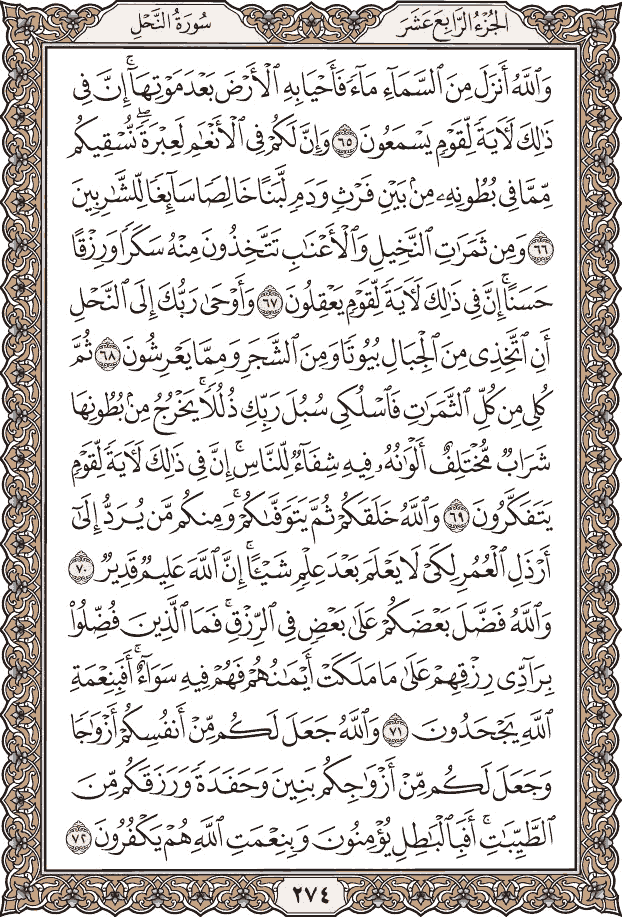 الجُزْءُ الرَّابِعَ عَشَرَ
سُورَةُ النَّحْلِ
وَٱللَّهُ أَنزَلَ مِنَ ٱلسَّمَآءِ مَآءً فَأَحْيَا بِهِ ٱلْأَرْضَ بَعْدَ مَوْتِهَآ ۚ إِنَّ فِى
ذَٰلِكَ لَأٓيَةً لِّقَوْمٍ يَسْمَعُونَ ٦٥ وَإِنَّ لَكُمْ فِى ٱلْأَنْعَٰمِ لَعِبْرَةً ۖ نُّسْقِيكُم
مِّمَّا فِى بُطُونِهِۦ مِنۢ بَيْنِ فَرْثٍ وَدَمٍ لَّبَنًا خَالِصًا سَآئِغًا لِّلشَّٰرِبِينَ
٦٦ وَمِن ثَمَرَٰتِ ٱلنَّخِيلِ وَٱلْأَعْنَٰبِ تَتَّخِذُونَ مِنْهُ سَكَرًا وَرِزْقًا
حَسَنًا ۗ إِنَّ فِى ذَٰلِكَ لَأٓيَةً لِّقَوْمٍ يَعْقِلُونَ ٦٧ وَأَوْحَىٰ رَبُّكَ إِلَى ٱلنَّحْلِ
أَنِ ٱتَّخِذِى مِنَ ٱلْجِبَالِ بُيُوتًا وَمِنَ ٱلشَّجَرِ وَمِمَّا يَعْرِشُونَ ٦٨ ثُمَّ
كُلِى مِن كُلِّ ٱلثَّمَرَٰتِ فَٱسْلُكِى سُبُلَ رَبِّكِ ذُلُلًا ۚ يَخْرُجُ مِنۢ بُطُونِهَا
شَرَابٌ مُّخْتَلِفٌ أَلْوَٰنُهُۥ فِيهِ شِفَآءٌ لِّلنَّاسِ ۗ إِنَّ فِى ذَٰلِكَ لَأٓيَةً لِّقَوْمٍ
يَتَفَكَّرُونَ ٦٩ وَٱللَّهُ خَلَقَكُمْ ثُمَّ يَتَوَفَّىٰكُمْ ۚ وَمِنكُم مَّن يُرَدُّ إِلَىٰٓ
أَرْذَلِ ٱلْعُمُرِ لِكَىْ لَا يَعْلَمَ بَعْدَ عِلْمٍ شَيْـًٔا ۚ إِنَّ ٱللَّهَ عَلِيمٌ قَدِيرٌ ٧٠
وَٱللَّهُ فَضَّلَ بَعْضَكُمْ عَلَىٰ بَعْضٍ فِى ٱلرِّزْقِ ۚ فَمَا ٱلَّذِينَ فُضِّلُوا۟
بِرَآدِّى رِزْقِهِمْ عَلَىٰ مَا مَلَكَتْ أَيْمَٰنُهُمْ فَهُمْ فِيهِ سَوَآءٌ ۚ أَفَبِنِعْمَةِ
ٱللَّهِ يَجْحَدُونَ ٧١ وَٱللَّهُ جَعَلَ لَكُم مِّنْ أَنفُسِكُمْ أَزْوَٰجًا
وَجَعَلَ لَكُم مِّنْ أَزْوَٰجِكُم بَنِينَ وَحَفَدَةً وَرَزَقَكُم مِّنَ
ٱلطَّيِّبَٰتِ ۚ أَفَبِٱلْبَٰطِلِ يُؤْمِنُونَ وَبِنِعْمَتِ ٱللَّهِ هُمْ يَكْفُرُونَ ٧٢
٢٧٤